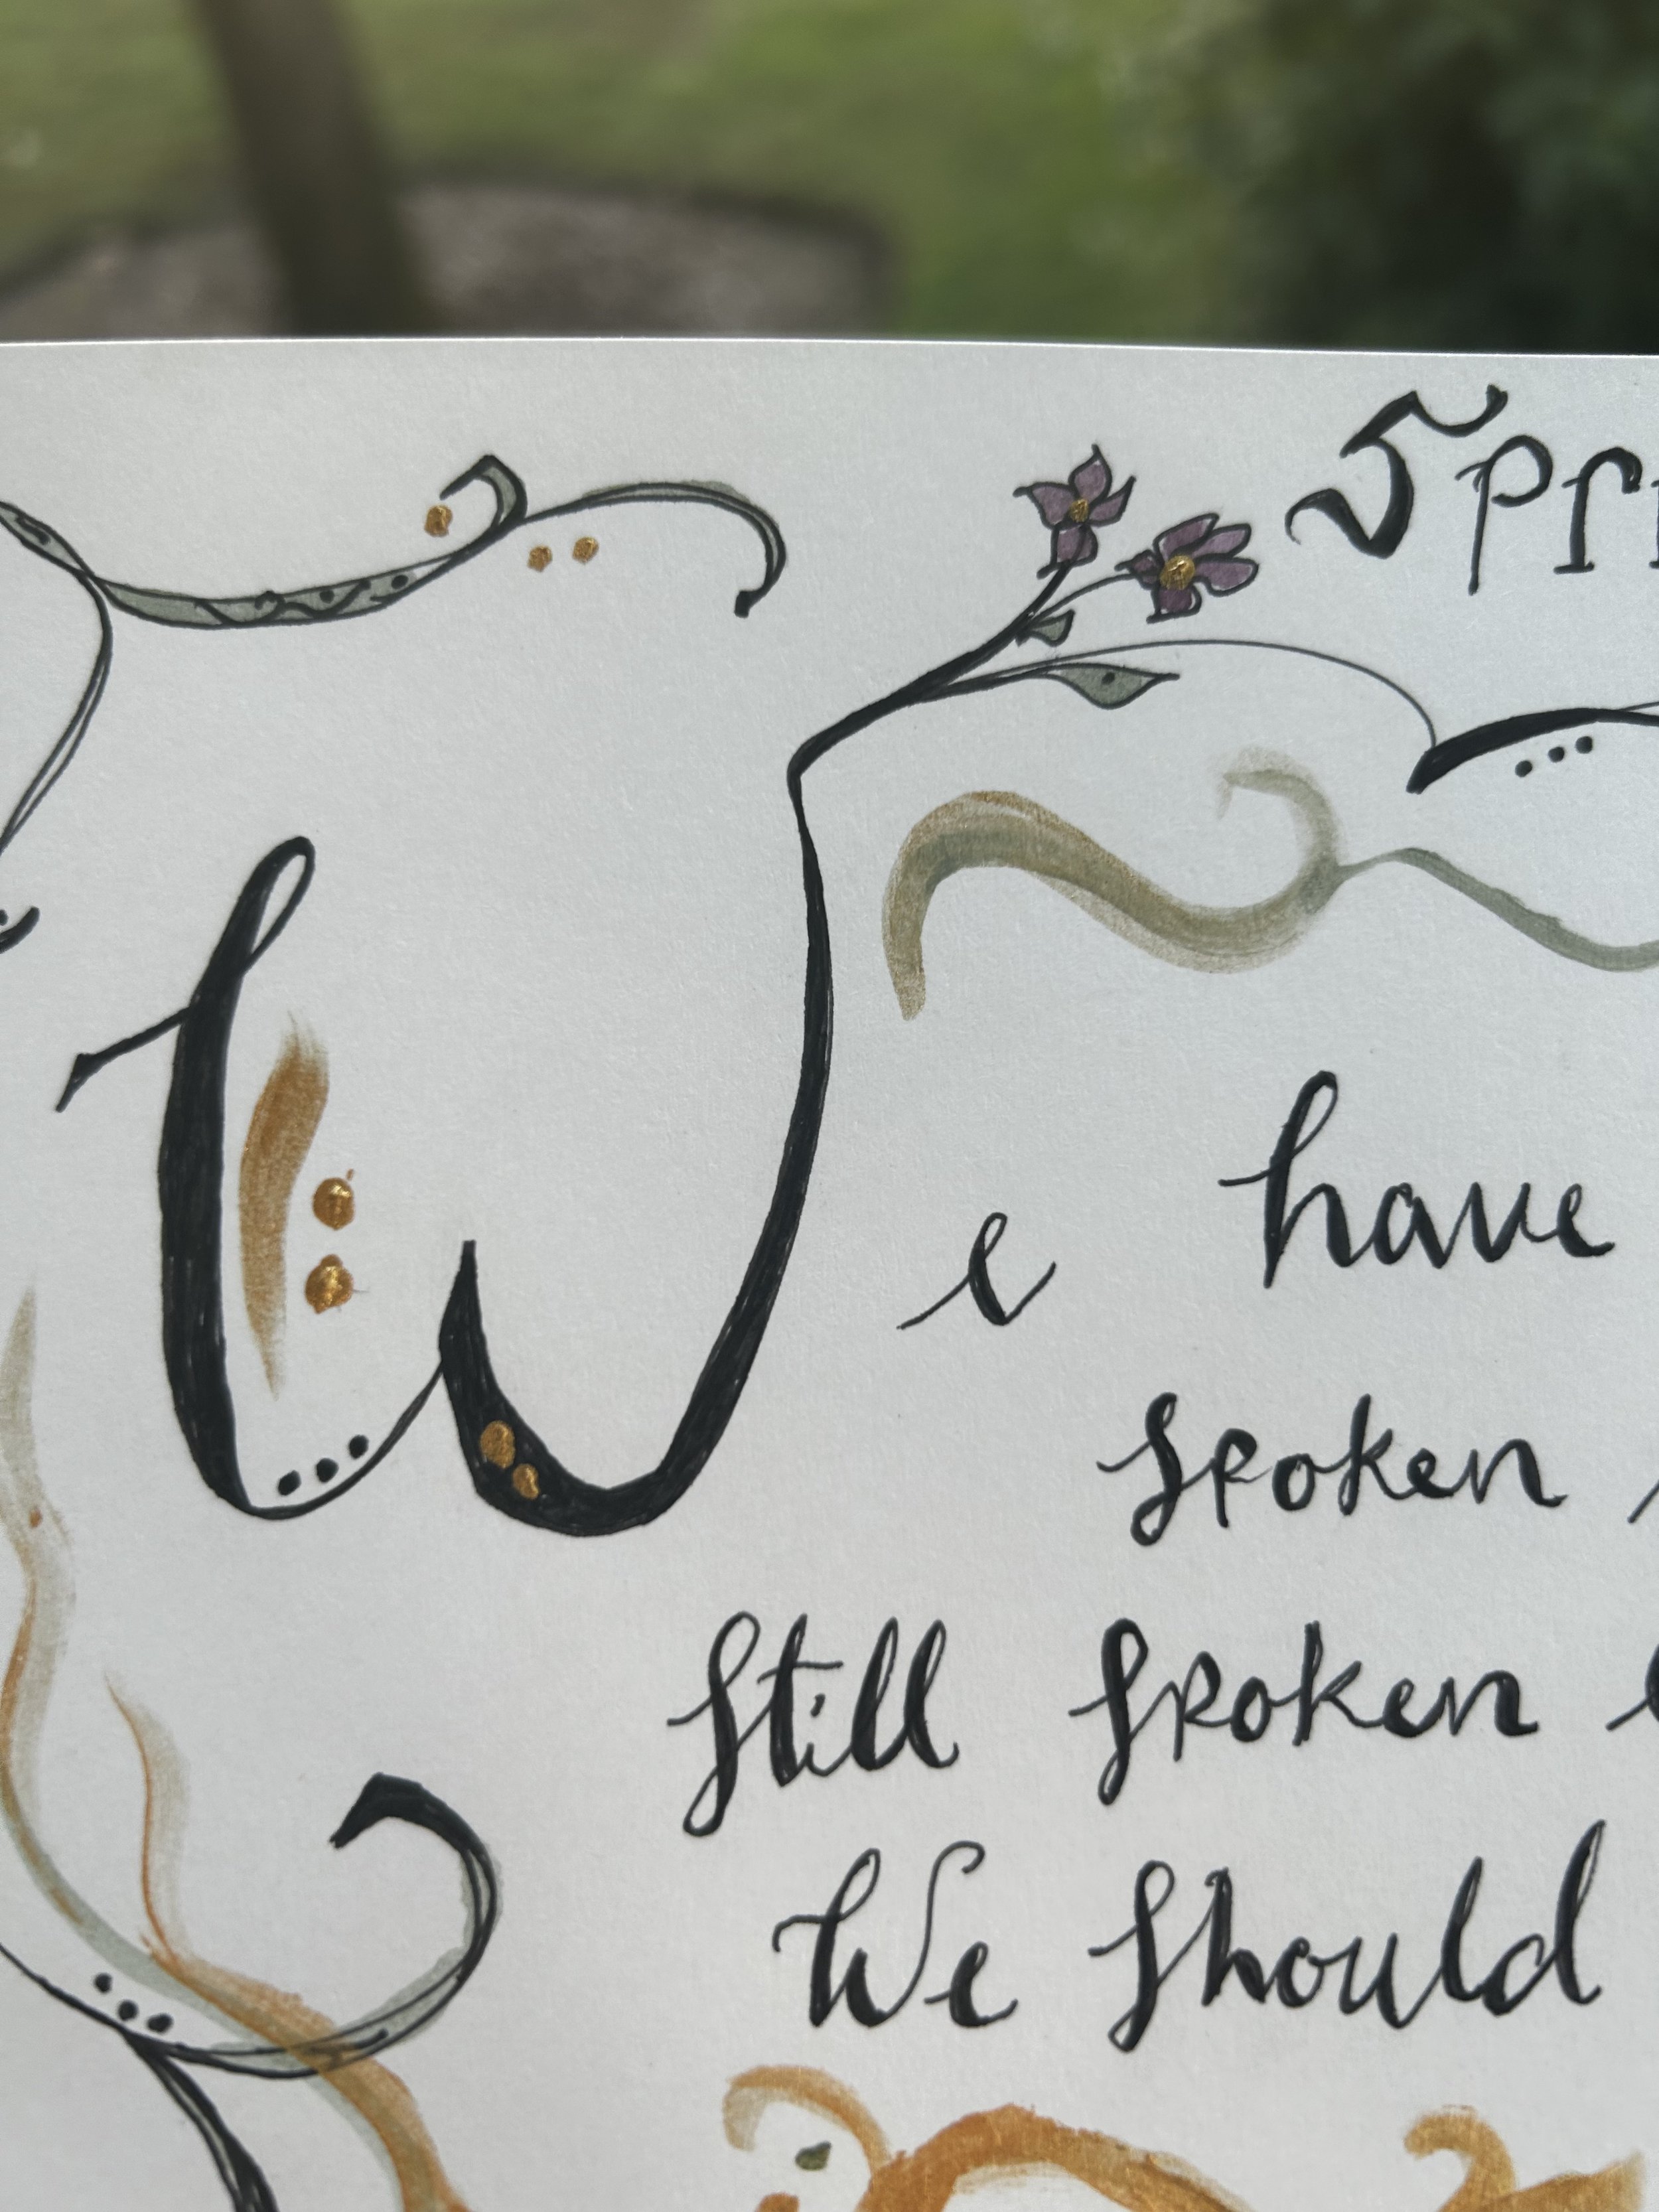 Spri
We have
spoken
still spoken
We should